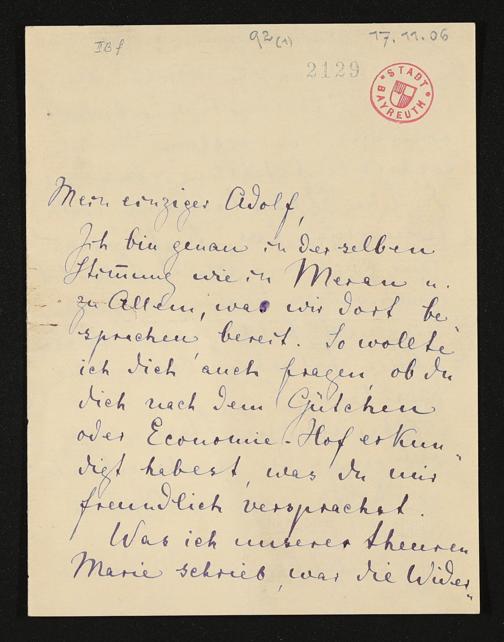 II B f
92 (1)
17.11.06
2129
STADT BAYREUTH
Mein einziger Adolf,
Ich bin genau in derselben
Stimmung wie in Meran u.
zu Allem, was wir dort be„
sprachen, bereit. So wollte
ich dich auch fragen, ob du
dich nach dem Gütchen
oder Economie-Hof erkun„
digt habest, was du mir
freundlich versprachst.
Was ich unserer theuren
Marie schrieb, war die Wider„